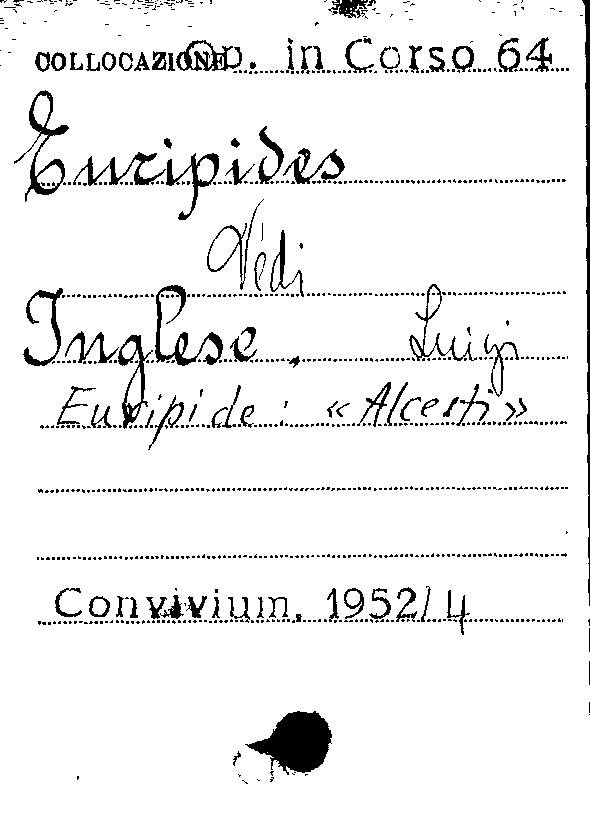 COLLOCAZIONE Op. in Corso 64
Euripides
Vedi
Inglese, Luigi
Euripide: «Alcesti»
Convivium, 1952/4